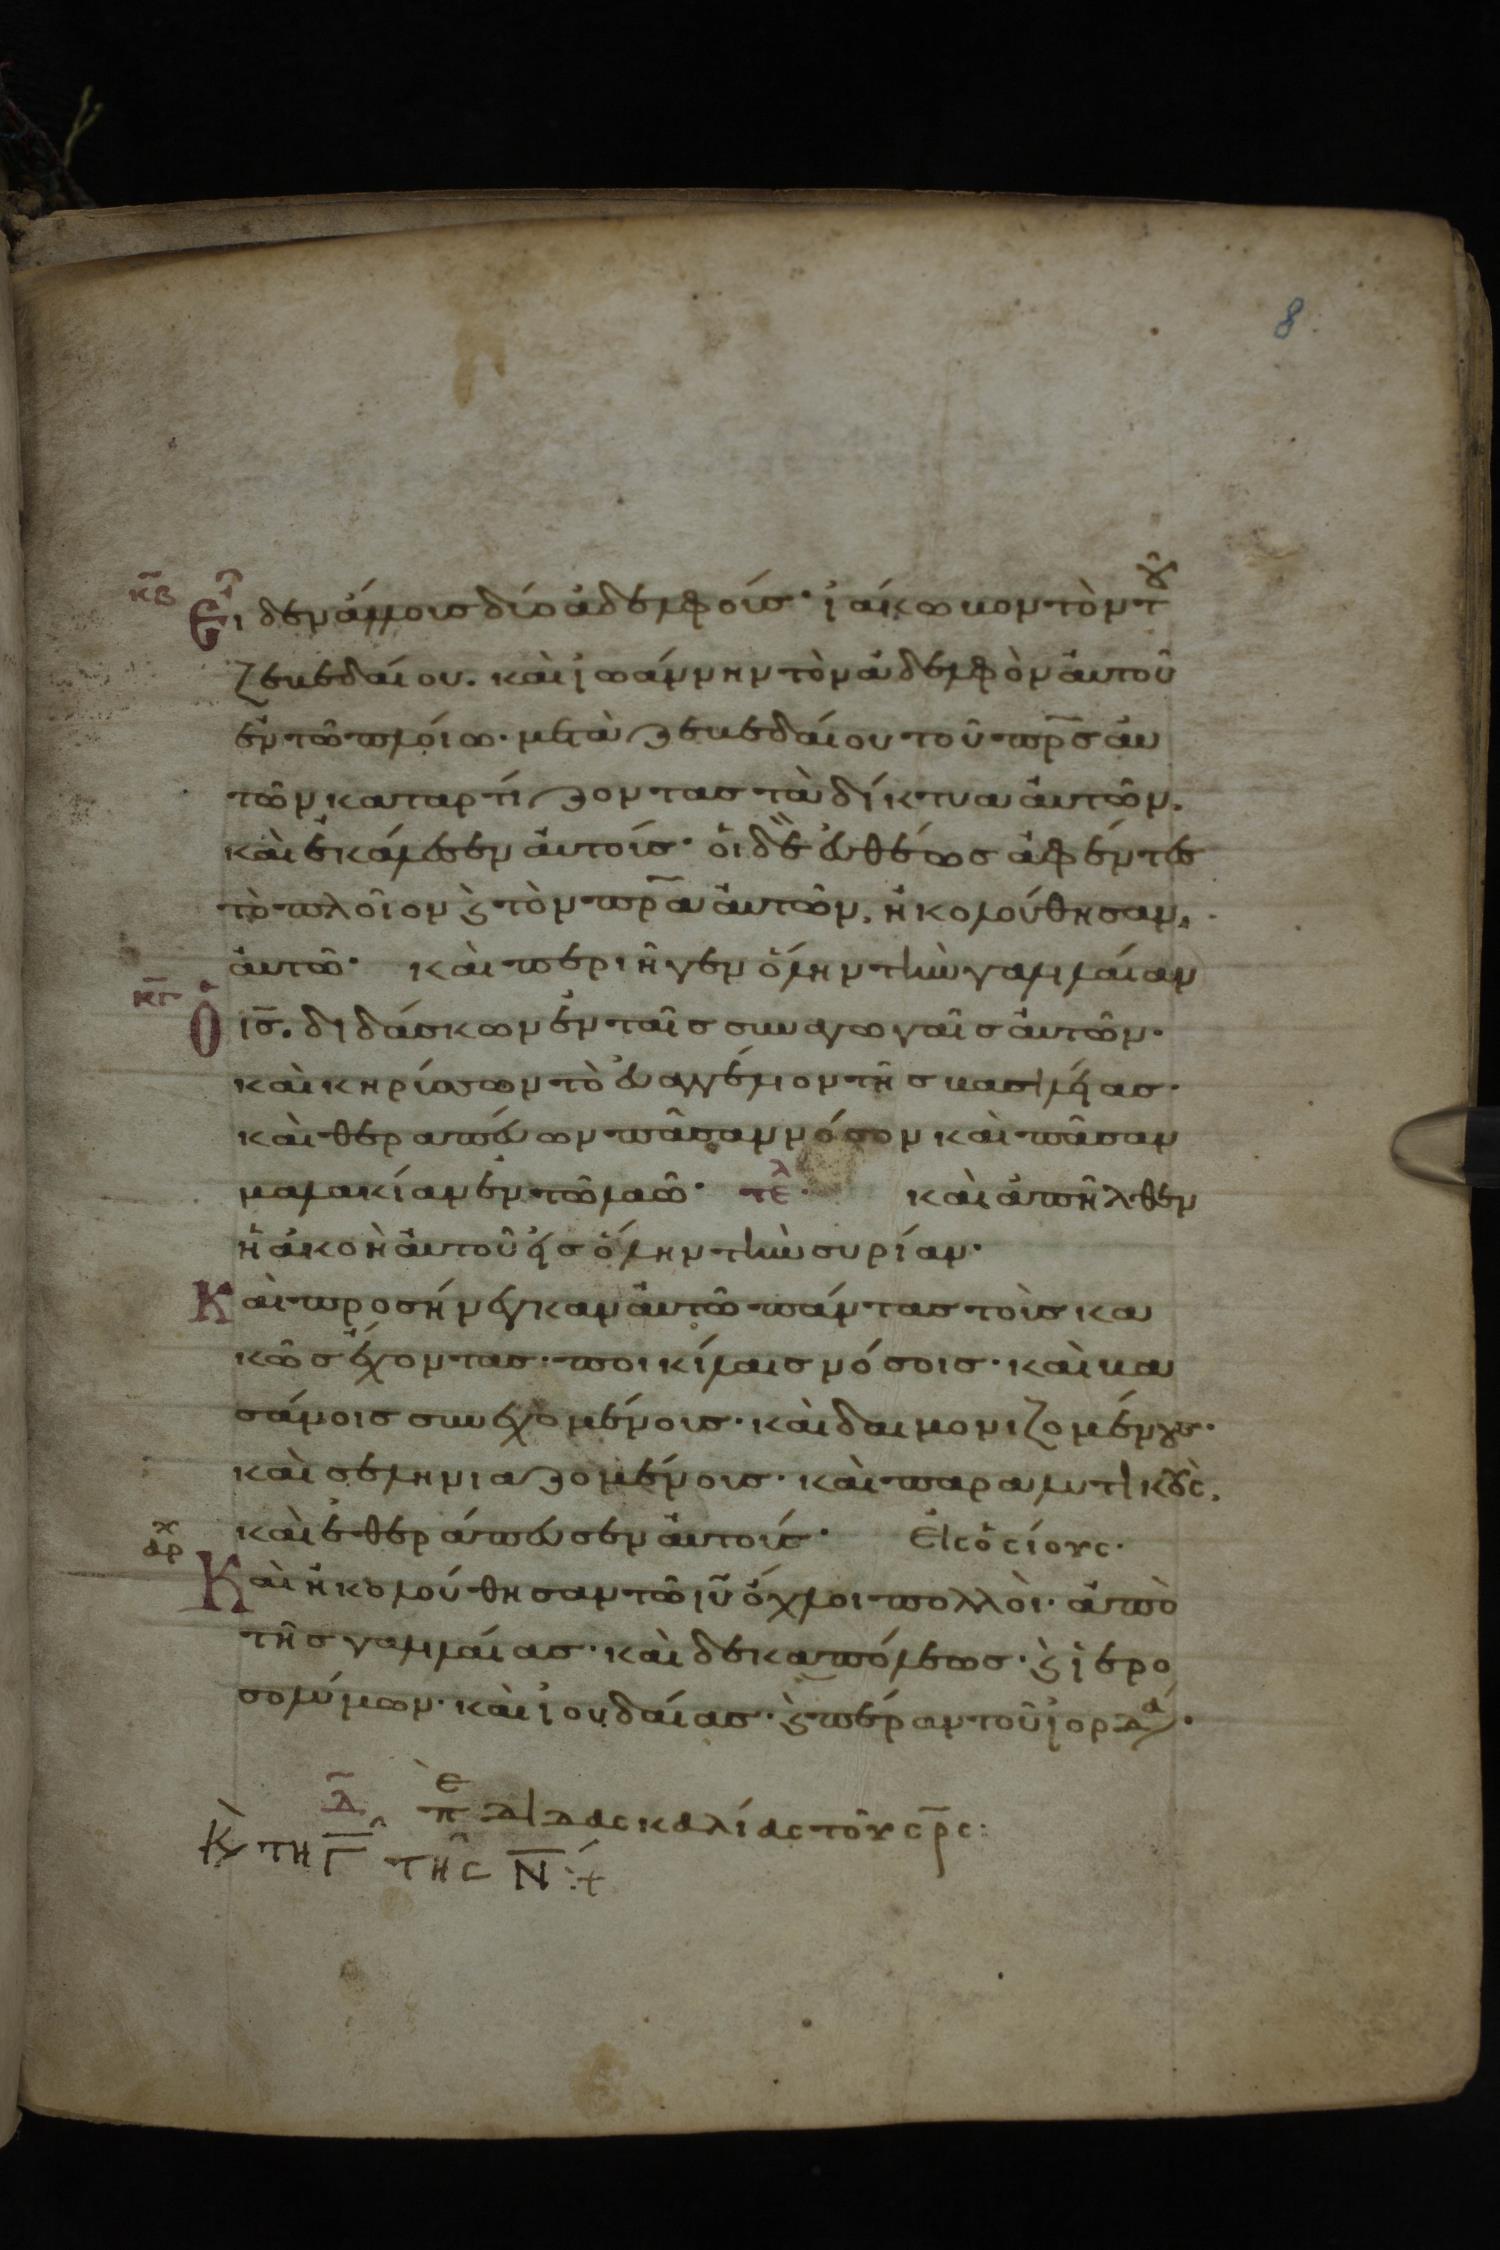 8
κβ Εἶδεν ἄλλους δύο ἀδελφούς· ἰάκωβον τὸν τοῦ
ζεβεδαίου. καὶ ἰωάννην τὸν ἀδελφὸν αὐτοῦ
ἐν τῶ πλοίω· μετὰ ζεβεδαίου τοῦ πρ̅σ αὐ
τῶν καταρτίζοντας τὰ δίκτυα αὐτῶν.
καὶ ἐκάλεσεν αὐτούς· οἱ δὲ εὐθέως ἀφέντες
τὸ πλοῖον ϗ τὸν πρ̅α αὐτῶν, ἠκολούθησαν
αὐτῶ· καὶ περιῆγεν ὅλην τὴν γαλιλαίαν
κγ Ὁ ισ̅. διδάσκων ἐν ταῖς συναγωγαῖς αὐτῶν·
καὶ κηρύσσων τὸ εὐαγγέλιον τῆς βασιλείας·
καὶ θεραπεύων πᾶσαν νόσον καὶ πᾶσαν
μαλακίαν ἐν τῶ λαῶ· τελ· καὶ ἀπῆλθεν
ἡ ἀκοὴ αὐτοῦ εἰς ὅλην τὴν συρίαν·
Καὶ προσήνεγκαν αὐτῶ πάντας τοὺς κα
κῶς ἔχοντας· ποικίλαις νόσοις· καὶ βα
σάνοις συνεχομένους· καὶ δαιμονιζομένους·
καὶ σεληνιαζομένους· καὶ παραλυτικοὺς,
καὶ ἐθεράπευσεν αὐτούς· Εἰς ὁσίους·
αρχ Καὶ ἠκολούθησαν τῶ ιυ̅ ὄχλοι πολλοὶ· ἀπὸ
τῆς γαλιλαίας· καὶ δεκαπόλεως· ϗ ἱερο
σολύμων· καὶ ἰουδαίας· ϗ πέραν τοῦ ἰορδά·
Δ̅ πε διδασκαλίας τοῦ σρ̅ς:
Κὺ τη Γ̅ τῆς Ν̅